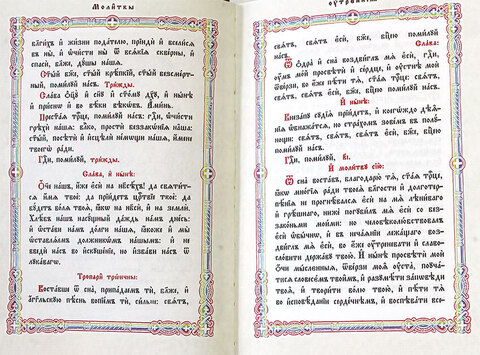 Молитвы
благихъ и жизни подателю, прїиди и вселися
въ ны, и ѡчисти ны ѿ всѧкїѧ сквѣрны, и
спаси, бл҃же, дꙋшы нашѧ.
Ст҃ый бж҃е, ст҃ый крѣпкїй, ст҃ый безсмер-
тный, помилꙋй насъ. Трижды.
Слава ѻц҃ꙋ и сн҃ꙋ и ст҃омꙋ дх҃ꙋ, и нынѣ
и приснѡ и во вѣки вѣкѡвъ. Аминь.
Прест҃аѧ трⷪ҇це, помилꙋй насъ: гдⷭ҇и, ѡчисти
грѣхи нашѧ: влⷣко, прости беззакѡнїѧ наша:
ст҃ый, посѣти и исцѣли немѡщи нашѧ, имене
твоегѡ ради.
Гдⷭ҇и, помилꙋй, трижды.
Слава, и нынѣ:
Ѻч҃е нашъ, иже еси на нб҃сѣхъ! да свѧтит-
сѧ имѧ твое: да прїидетъ црⷭ҇твїе твое: да
бꙋдетъ волѧ твоѧ, ꙗкѡ на нб҃си и на земли.
Хлѣбъ нашъ насꙋщный даждь намъ днесь:
и ѡстави намъ долги нашѧ, ꙗкоже и мы
ѡставлѧемъ должникѡмъ нашымъ: и не
введи насъ во искꙋшенїе, но избави насъ ѿ
лꙋкавагѡ.
Тропари трⷪ҇ичны:
Воставше ѿ сна, припадаемъ ти, бл҃же, и
агг҃льскꙋю пѣснь вопїемъ ти, сильне: свѧтъ,
оутреннїѧ
свѧтъ, свѧтъ еси, бж҃е, бцⷣею помилꙋй
насъ.
Слава:
Ѿ одра и сна воздвиглъ мѧ еси, гдⷭ҇и,
оумъ мой просвѣти и сердце, и оустнѣ мои
ѿверзи, во еже пѣти тѧ, ст҃аѧ трⷪ҇це: свѧтъ,
свѧтъ, свѧтъ еси, бж҃е, бцⷣею помилꙋй насъ.
И нынѣ:
Внезапꙋ судїѧ прїидетъ, и коегѡждо дѣѧ-
нїѧ ѡбнажатсѧ, но страхомъ зовемъ въ полꙋ-
нощи: свѧтъ, свѧтъ, свѧтъ еси, бж҃е, бцⷣею
помилꙋй насъ.
Гдⷭ҇и, помилꙋй, в҃і.
И молитвꙋ сїю:
Ѿ сна воставъ, благодарю тѧ, ст҃аѧ трⷪ҇це,
ꙗкѡ многїѧ ради твоеѧ бл҃гости и долготер-
пѣнїѧ не прогнѣвалсѧ еси на мѧ лѣниваго
и грѣшнаго, нижѐ погꙋбилъ мѧ еси со без-
законьми моими: но человѣколюбствовалъ
еси ѡбычнѡ, и въ нечаѧнїи лежащаго воздви-
глъ мѧ еси, во еже оутреневати и славо-
словити державꙋ твою. И нынѣ просвѣти мои
ѻчи мысленныѧ, ѿверзи моѧ оуста, поꙋчати-
сѧ словесемъ твоимъ, и разꙋмѣти заповѣди
твоѧ, и творити волю твою, и пѣти тѧ
во исповѣданїи сердечнѣмъ, и воспѣвати все-